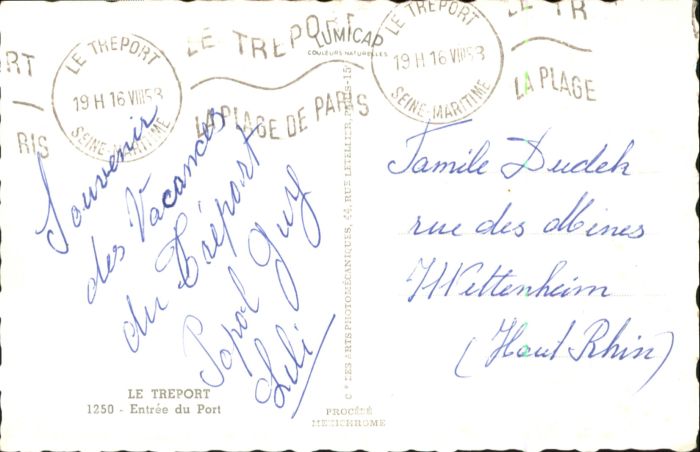 LE TREPORT
19 H 16 VIII 58
SEINE-MARITIME
LE TREPORT
LA PLAGE DE PARIS
LE TREPORT
19 H 16 VIII 58
SEINE-MARITIME
LE TR
LA PLAGE
RT
RIS
LUMICAP
COULEURS NATURELLES
Souvenir
des Vacances
du Tréport
Popol Guy
Lili
Famile Dudek
rue des Mines
Wittenheim
(Haut Rhin)
LE TREPORT
1250 - Entrée du Port
LES ARTS PHOTOMÉCANIQUES, 44, RUE LETELLIER, PARIS-15
PROCÉDÉ
MEXICHROME